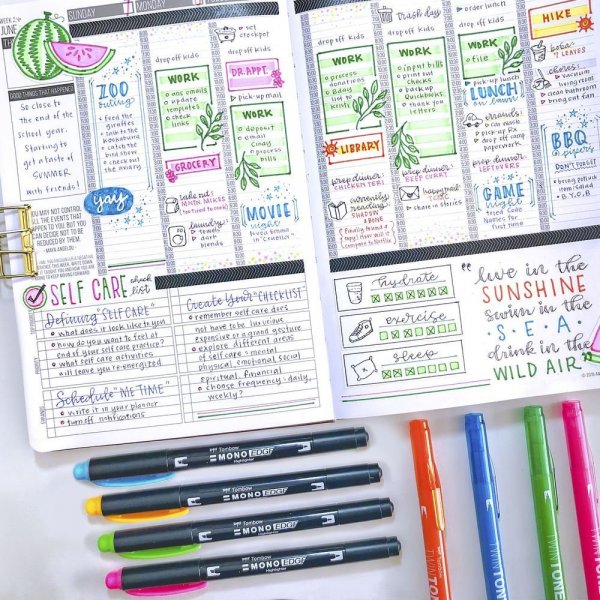 WEEK 24
JUNE
SUNDAY
MONDAY
GOOD THINGS THAT HAPPENED
So close to
the end of the
school year.
Starting to
get a taste of
SUMMER
with friends!
YOU MAY NOT CONTROL
ALL THE EVENTS THAT
HAPPEN TO YOU, BUT YOU
CAN DECIDE NOT TO BE
REDUCED BY THEM.
- MAYA ANGELOU
ZOO
outing
feed the
giraffes
talk to the
kookaburra
catch the
bird show
check out
the aviary
yay
drop off kids
WORK
ans emails
update
templates
check
links
GROCERY
take out:
laundry:
towels
dark
blends
set
crockpot
drop off kids
DR. APPT.
pick-up mail
WORK
deposit
email
Cindy
process
bills
MOVIE
night
drop off kids
WORK
process
donations
bday
list to
kirsty
LIBRARY
prep dinner:
CHICKEN TERI
currently
reading:
SHADOW
& BONE
trash day
drop off kids
WORK
input bills
print out
bills
backup
Quickbooks
thank you
letters
prep dinner:
BEEF CURRY
happy mail:
order lunch
drop off kids
WORK
file
pick-up lunch
LUNCH
errands:
car wash
pick up Rx
drop off camp
prep dinner:
LEFTOVERS
GAME
night
HIKE
boba:
chores:
vacuum
living room
clean bathroom
bring out fan
BBQ
DON'T FORGET
bring potluck
item/salad
B.Y.O.B
SELF CARE check
list
Defining "SELF CARE"
what does it look like to you
how do you want to feel at
end of your self care practice?
what self care activities
will leave you re-energized
Schedule "ME TIME"
write it in your planner
turn off notifications
Create Your "CHECKLIST
remember self care does
not have to be luxurious
expensive or a grand gesture
explore different areas
of self care: mental
physical, emotional, social
spiritual, financial
choose frequency: daily,
weekly?
hydrate
exercise
sleep
"live in the
SUNSHINE
swim in the
S·E·A
drink in the
WILD AIR"
Tombow
MONO EDGE
Highlighter
Tombow
MONO EDGE
Highlighter
Tombow
MONO EDGE
Highlighter
Tombow
MONO EDGE
Highlighter
TWINTONE
TWINTONE
TWINTONE